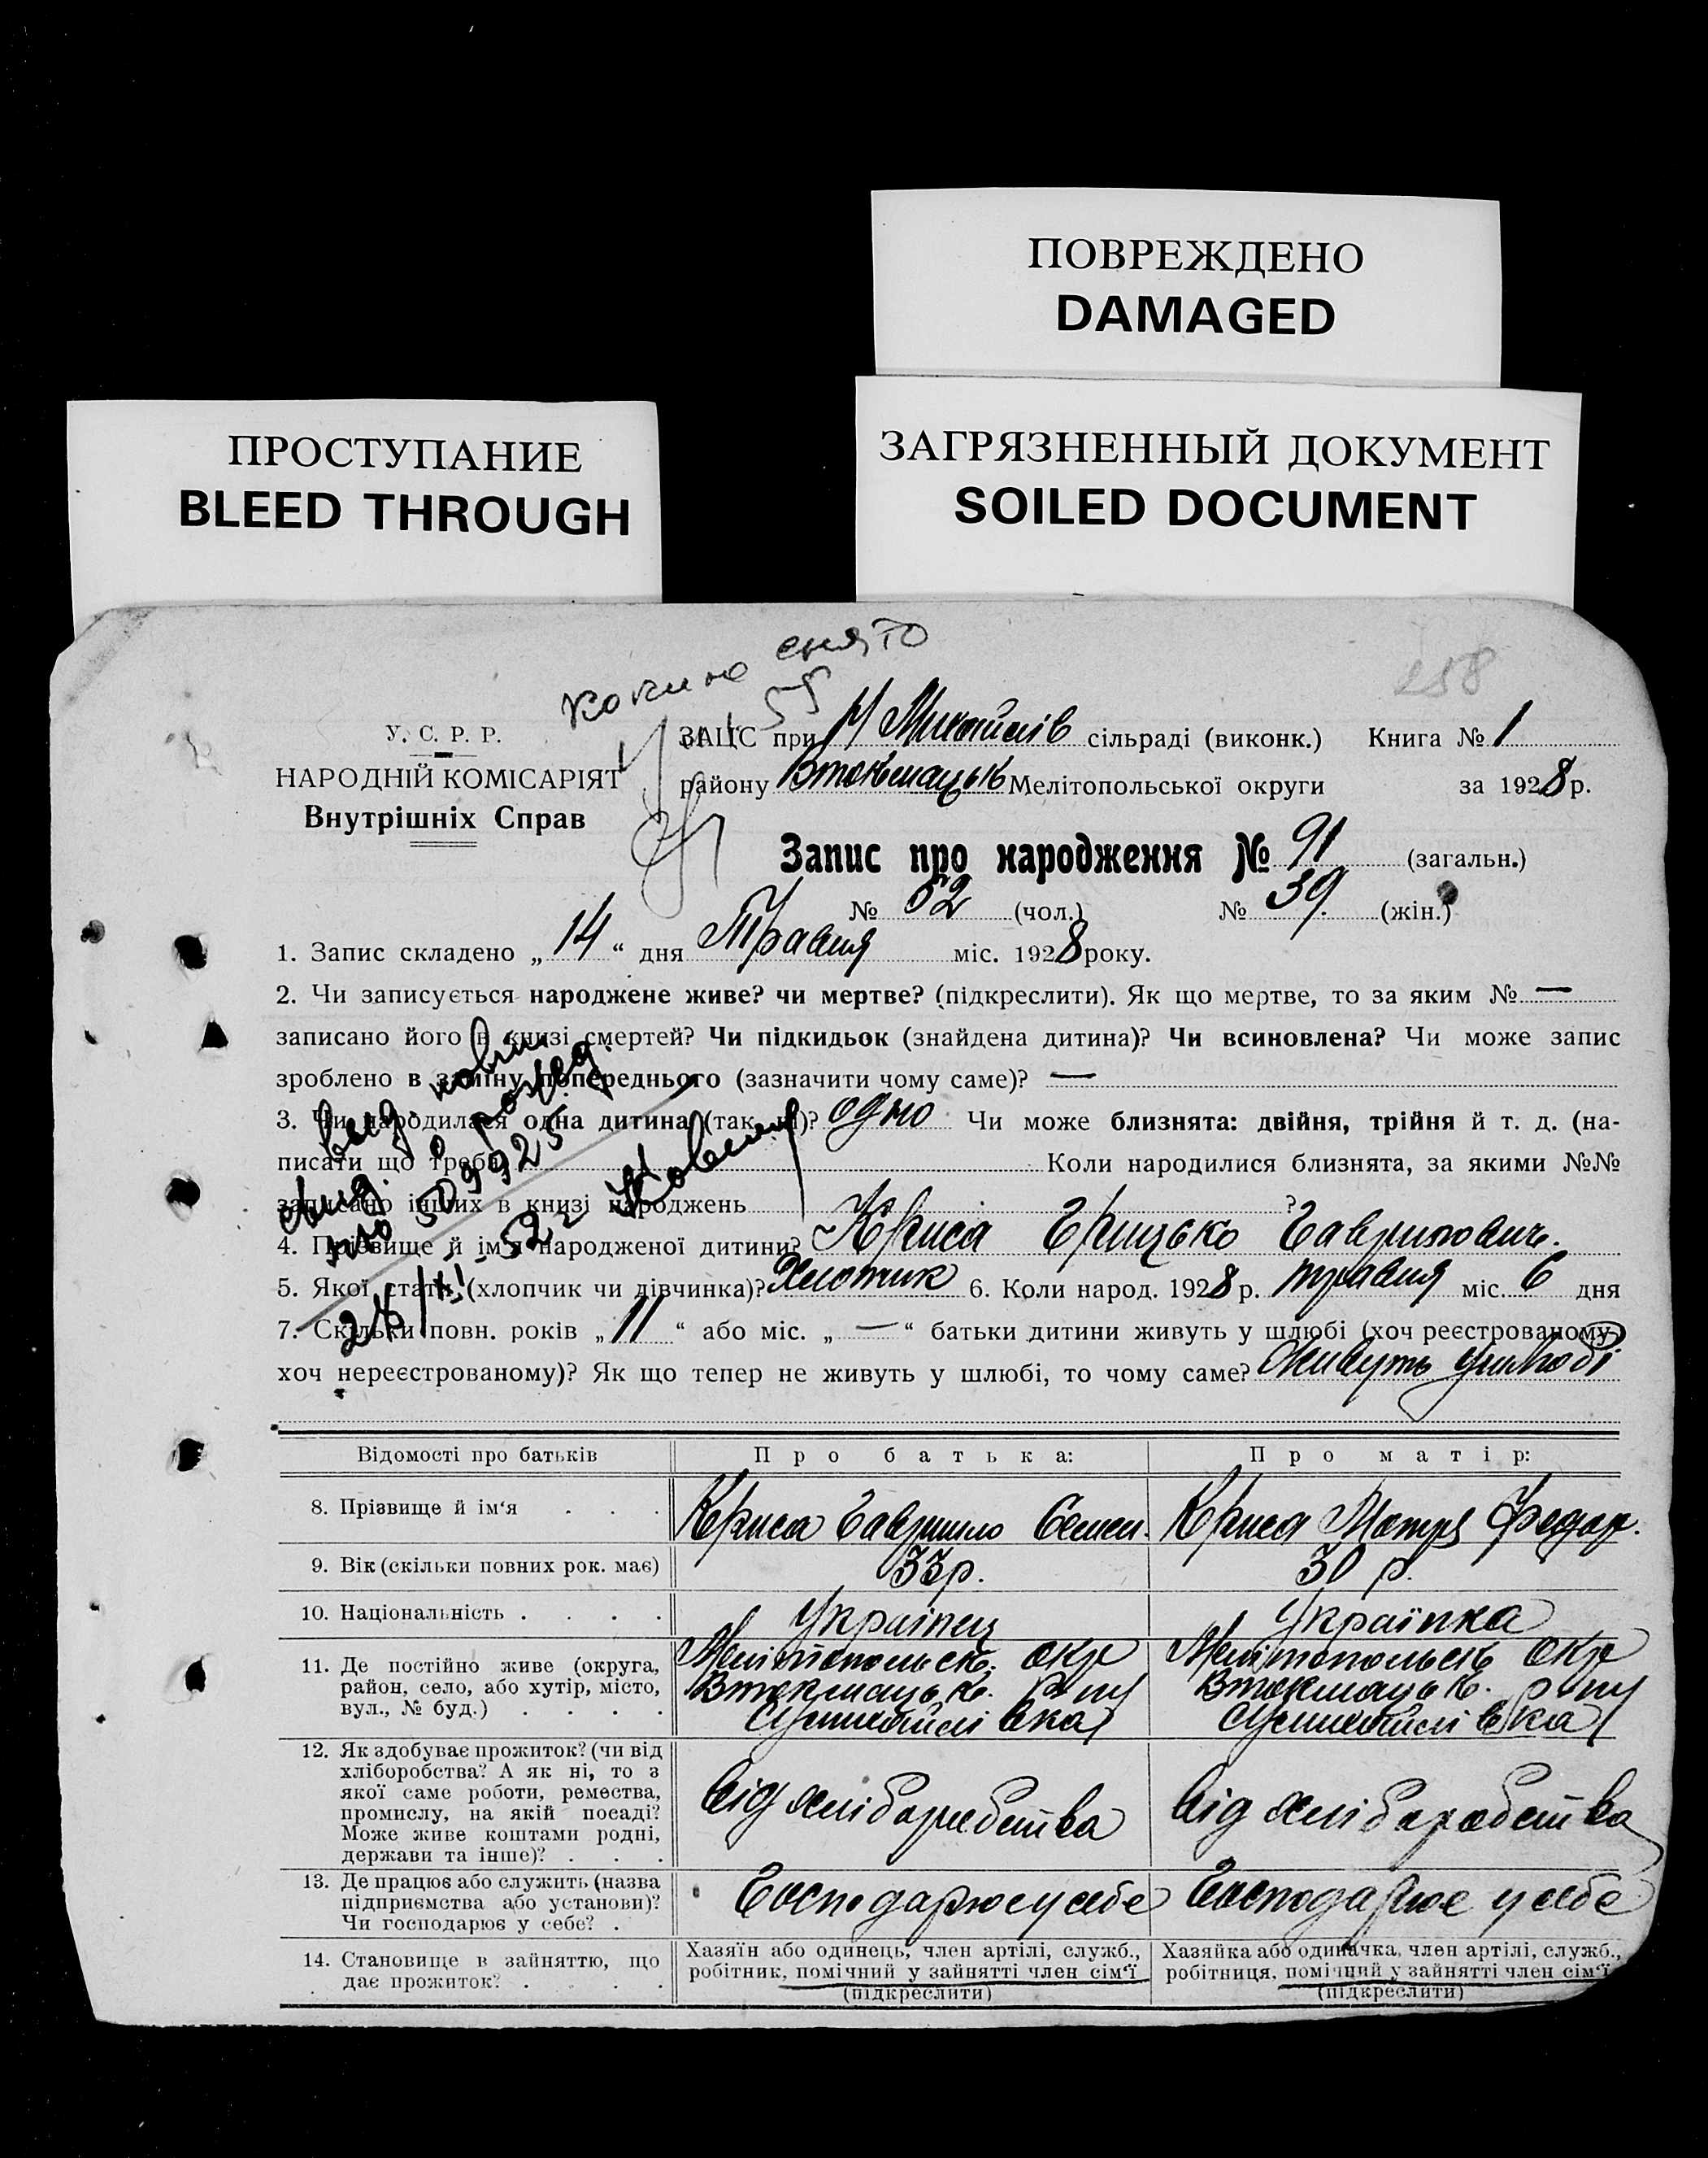 ПОВРЕЖДЕНО
DAMAGED
ПРОСТУПАНИЕ
BLEED THROUGH
ЗАГРЯЗНЕННЫЙ ДОКУМЕНТ
SOILED DOCUMENT
снято
258
У. С. Р. Р.
НАРОДНІЙ КОМІСАРІЯТ
Внутрішніх Справ
ЗАЦС при Микайлів сільраді (виконк.) Книга № 1
району Втокмацьк Мелітопольської округи за 1928 р.
Запис про народження № 91 (загальн.)
№ 52 (чол.) № 39. (жін.)
1. Запис складено „14“ дня Травня міс. 1928 року.
2. Чи записується народжене живе? чи мертве? (підкреслити). Як що мертве, то за яким № —
записано його в книзі смертей? Чи підкидьок (знайдена дитина)? Чи всиновлена? Чи може запис
зроблено в заміну попереднього (зазначити чому саме)? —
3. Чи народилася одна дитина (так, ні)? одно Чи може близнята: двійня, трійня й т. д. (на-
писати що треба) Коли народилися близнята, за якими №№
записано інших в книзі народжень ?
4. Прізвище й ім'я народженої дитини? Криса Грицько Гаврилович.
5. Якої статі (хлопчик чи дівчинка)? Хлопчик 6. Коли народ. 1928 р. травня міс. 6 дня
7. Скільки повн. років „11“ або міс. „—“ батьки дитини живуть у шлюбі (хоч реєстрованому,
хоч нереєстрованому)? Як що тепер не живуть у шлюбі, то чому саме? Живуть ушлюбі
Відомості про батьків Про батька: Про матір:
8. Прізвище й ім‘я . . . Криса Гаврило Семен. Криса Мотря Федор.
9. Вік (скільки повних рок. має) 33 р. 30 р.
10. Національність . . . . Українец Українка
11. Де постійно живе (округа, Мелітопольськ. окр Мелітопольськ окр
район, село, або хутір, місто, Втокмацьк. р-ну Втокмацьк. р-ну
вул., № буд.) . . . .
12. Як здобуває прожиток? (чи від
хліборобства? А як ні, то з
якої саме роботи, ремества, від хліборобства від хліборобства
промислу, на якій посаді?
Може живе коштами родні,
держави та інше)? . . .
13. Де працює або служить (назва
підприємства або установи)? Господарює у себе Господарює у себе
Чи господарює у себе? .
14. Становище в зайняттю, що Хазяїн або одинець, член артілі, служб., Хазяйка або одиначка, член артілі, служб.,
дає прожиток? . . . робітник, помічний у зайнятті член сім‘ї робітниця, помічний у зайнятті член сім‘ї
(підкреслити) (підкреслити)